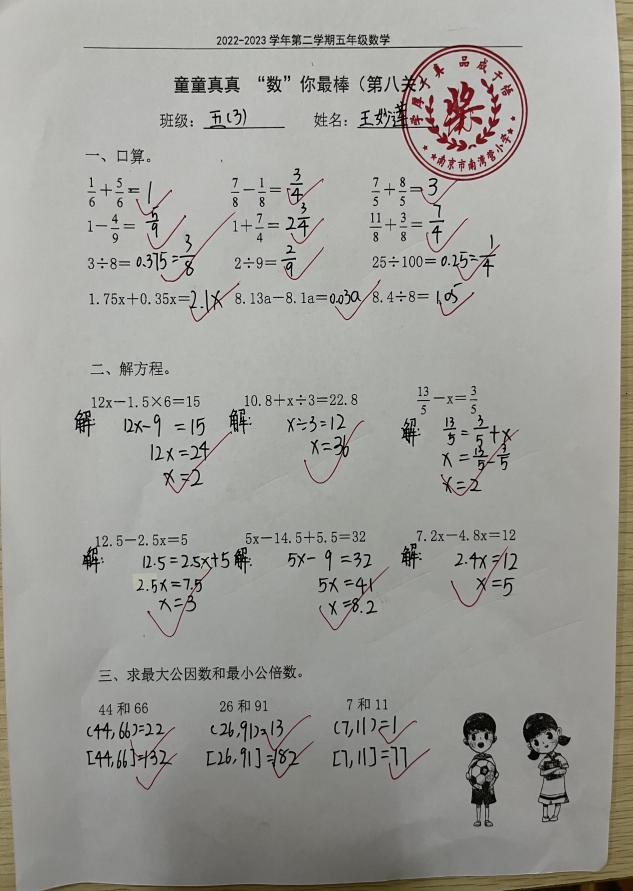 2022-2023 学年第二学期五年级数学
童童真真 “数”你最棒（第八关）
班级： 五(3) 姓名： 王妙莲
奖
南京市南湾营小学
一、口算。
1/6＋5/6＝1 7/8－1/8＝3/4 7/5＋8/5＝3
1－4/9＝5/9 1＋7/4＝2 3/4 11/8＋3/8＝7/4
3÷8＝0.375=3/8 2÷9＝2/9 25÷100＝0.25=1/4
1.75x＋0.35x＝2.1x 8.13a－8.1a＝0.03a 8.4÷8＝1.05
二、解方程。
12x－1.5×6＝15 10.8＋x÷3＝22.8 13/5－x＝3/5
解: 12x-9=15 解: x÷3=12 解: 13/5=3/5+x
12x=24 x=36 x=13/5-3/5
x=2 x=2
12.5－2.5x＝5 5x－14.5＋5.5＝32 7.2x－4.8x＝12
解: 12.5=2.5x+5 解: 5x-9=32 解: 2.4x=12
2.5x=7.5 5x=41 x=5
x=3 x=8.2
三、求最大公因数和最小公倍数。
44 和 66 26 和 91 7 和 11
(44,66)=22 (26,91)=13 (7,11)=1
[44,66]=132 [26,91]=182 [7,11]=77